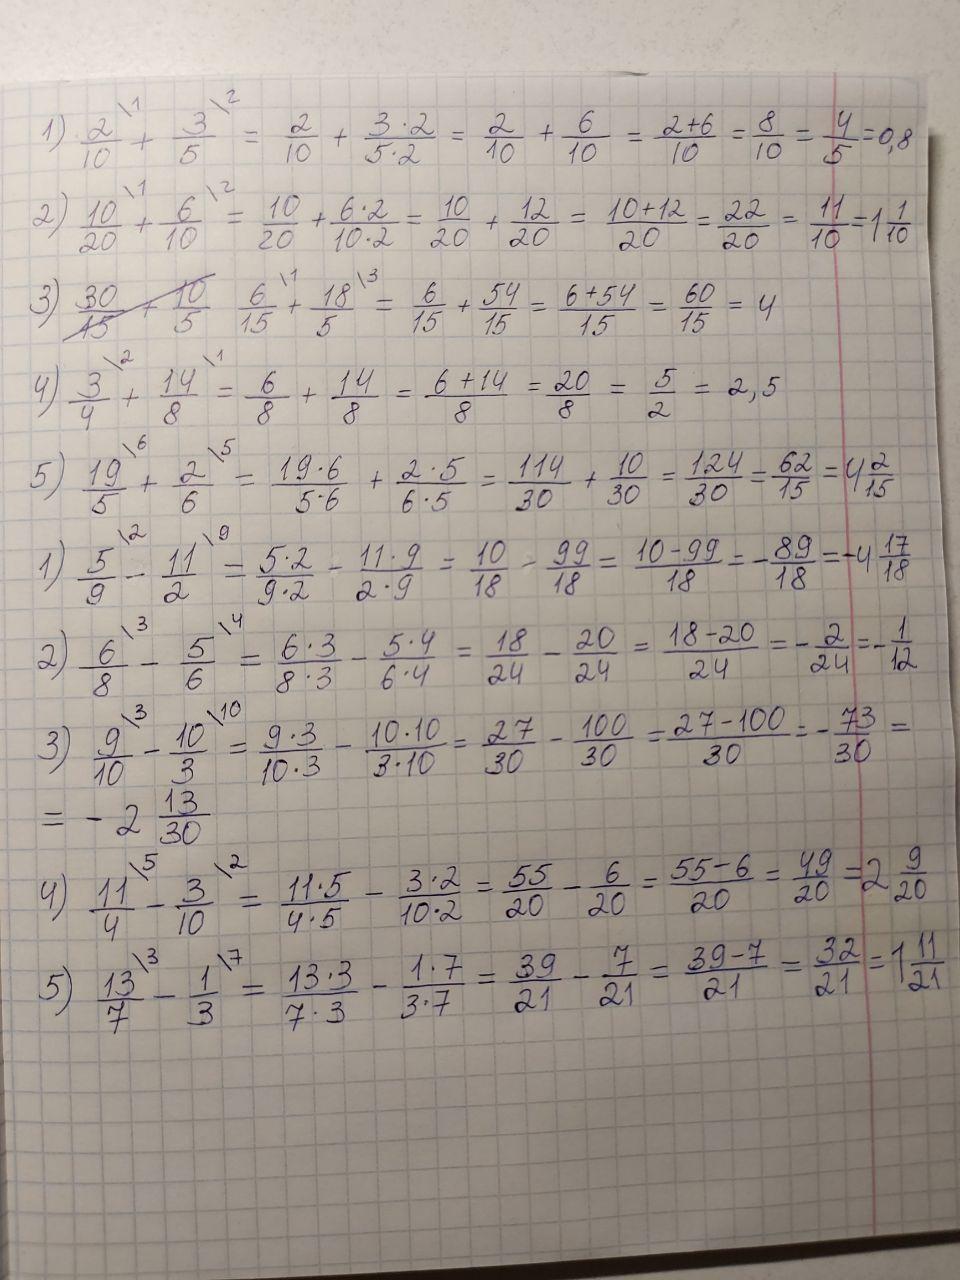 1) 2/10 \1 + 3/5 \2 = 2/10 + 3·2/5·2 = 2/10 + 6/10 = 2+6/10 = 8/10 = 4/5 = 0,8
2) 10/20 \1 + 6/10 \2 = 10/20 + 6·2/10·2 = 10/20 + 12/20 = 10+12/20 = 22/20 = 11/10 = 1 1/10
3) 30/15 + 10/5 6/15 \1 + 18/5 \3 = 6/15 + 54/15 = 6+54/15 = 60/15 = 4
4) 3/4 \2 + 14/8 \1 = 6/8 + 14/8 = 6+14/8 = 20/8 = 5/2 = 2,5
5) 19/5 \6 + 2/6 \5 = 19·6/5·6 + 2·5/6·5 = 114/30 + 10/30 = 124/30 = 62/15 = 4 2/15
1) 5/9 \2 - 11/2 \9 = 5·2/9·2 - 11·9/2·9 = 10/18 - 99/18 = 10-99/18 = -89/18 = -4 17/18
2) 6/8 \3 - 5/6 \4 = 6·3/8·3 - 5·4/6·4 = 18/24 - 20/24 = 18-20/24 = -2/24 = -1/12
3) 9/10 \3 - 10/3 \10 = 9·3/10·3 - 10·10/3·10 = 27/30 - 100/30 = 27-100/30 = -73/30 =
= -2 13/30
4) 11/4 \5 - 3/10 \2 = 11·5/4·5 - 3·2/10·2 = 55/20 - 6/20 = 55-6/20 = 49/20 = 2 9/20
5) 13/7 \3 - 1/3 \7 = 13·3/7·3 - 1·7/3·7 = 39/21 - 7/21 = 39-7/21 = 32/21 = 1 11/21